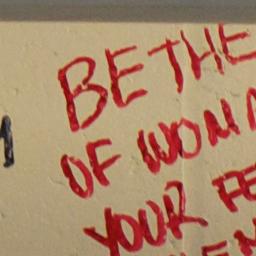 BE THE
OF WOMA
YOUR FE